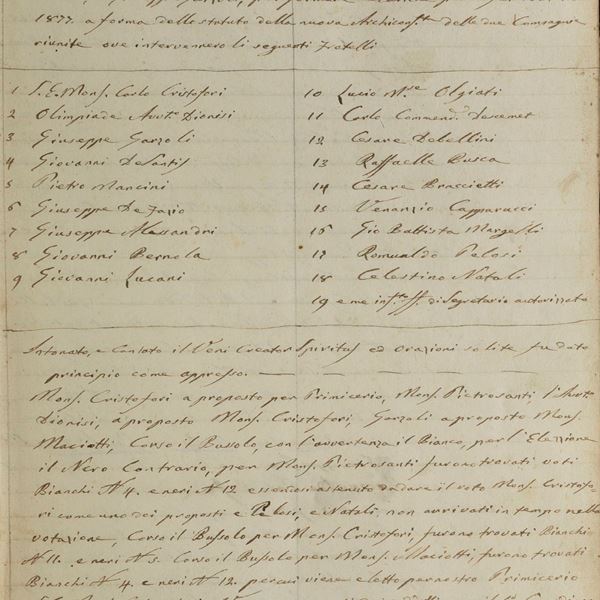 1877. a forma dello statuto della nuova Archiconfta delle due Compagnie
riunite ove intervennero li seguenti Fratelli
1 S. E. Mons. Carlo Cristofori
2 Olimpiade Avvto Dionisi
3 Giuseppe Garzoli
4 Giovanni DeSantis
5 Pietro Mancini
6 Giuseppe De Fazio
7 Giuseppe Alessandri
8 Giovanni Bernola
9 Giovanni Lucani
10 Lucio Mse Olgiati
11 Carlo Commend. Descemet
12 Cesare Debellini
13 Raffaelle Busca
14 Cesare Braccietti
15 Venanzio Capparucci
16 Gio Battista Margelli
17 Romualdo Pelosi
18 Celestino Natali
19 e me di Segretario autorizzato
Intonato, e Cantato il Veni Creator Spiritus ed orazioni solite fu dato
principio come appresso.
Mons. Cristofori a proposto per Primicerio, Mons. Pietrosanti l'Avvto
Dionisi, a proposto Mons. Cristofori, Garzoli a proposto Mons.
Maciotti, Corso il Bussolo, con l'avvertenza il Bianco, per l'Elezione
il Nero Contrario, per Mons. Pietrosanti furono trovati voti
Bianchi N 4. e neri N 12 essendosi astenuto dadare il voto Mons. Cristofo-
ri come uno dei proposti e Pelosi, e Natali, non arrivati in tempo nella
votazione, Corso il Bussolo per Mons. Cristofori, furono trovati Bianchi
N 11. e neri N 5. Corso il Bussolo per Mons. Maciotti, furono trovati
Bianchi N 4. e neri N 12. percui viene eletto per nostro Primicerio